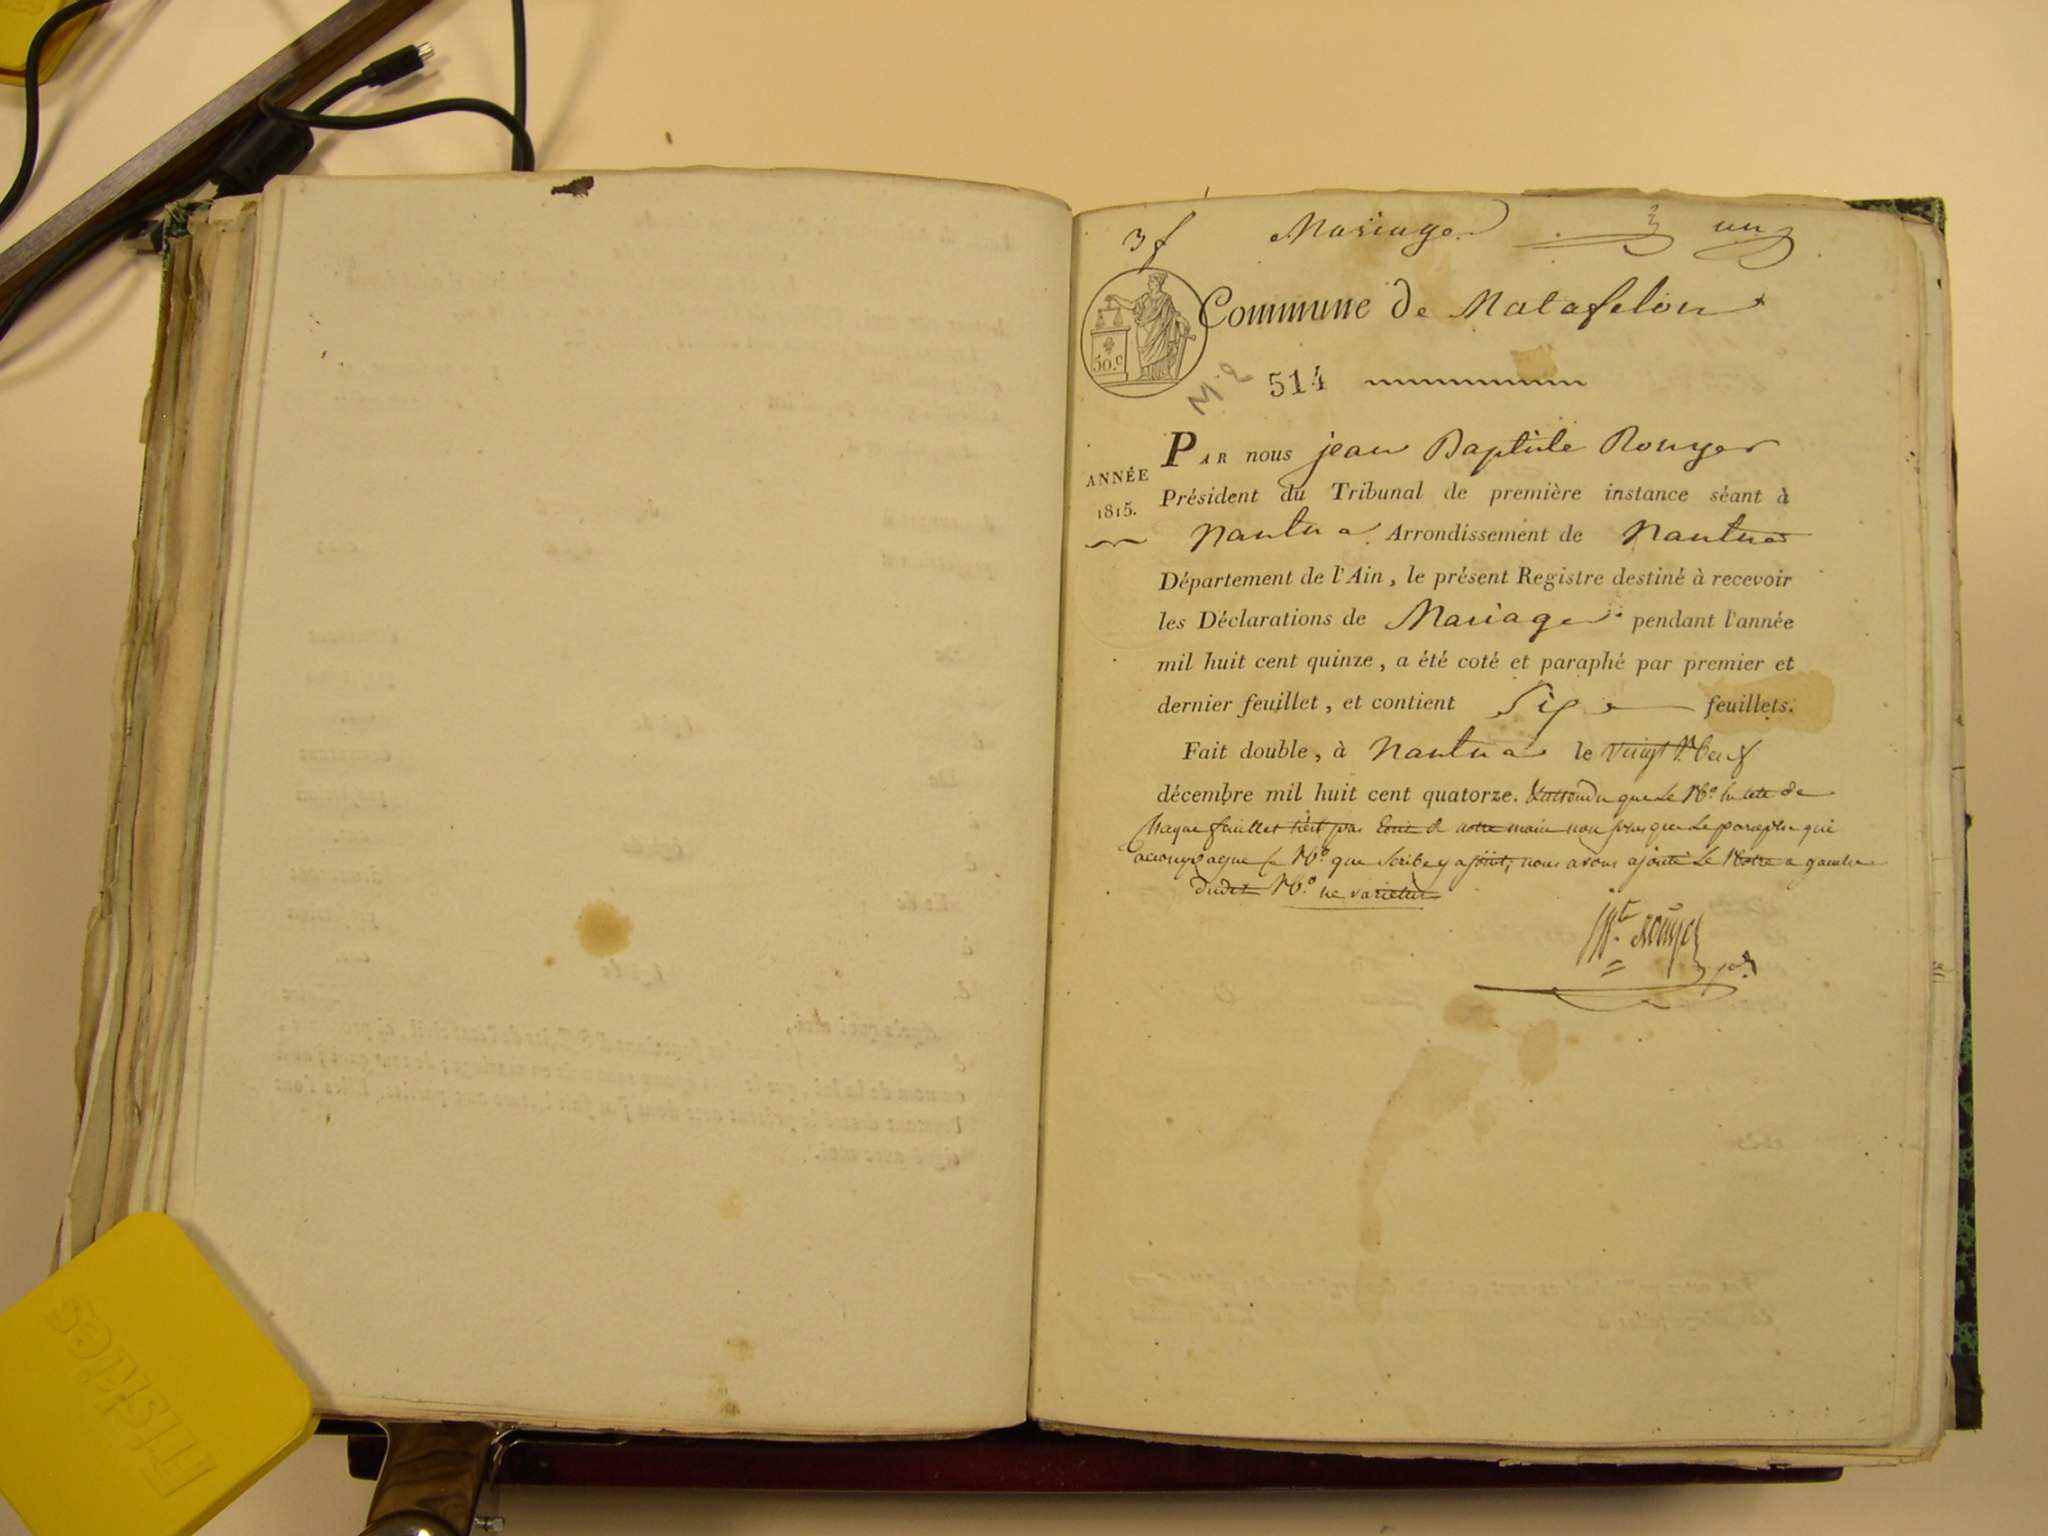 3 f Mariage un
Commune de Matafelon
50.c
M.2 514
PAR nous jean Baptiste Rouyer
ANNÉE
1815.
Président du Tribunal de première instance séant à
Nantua Arrondissement de Nantua
Département de l'Ain, le présent Registre destiné à recevoir
les Déclarations de Mariage pendant l'année
mil huit cent quinze, a été coté et paraphé par premier et
dernier feuillet, et contient Six feuillets.
Fait double, à Nantua le vingt neuf
décembre mil huit cent quatorze. attendu que Le N.o en tete de
chaque feuillet n'est pas Ecrit de notre main non plus que Le paraphe qui
accompagne ce N.o que Scribe y a joint, nous avons ajouté Le Notre a gauche
dudit N.o ne varietur
Bte Rouyer